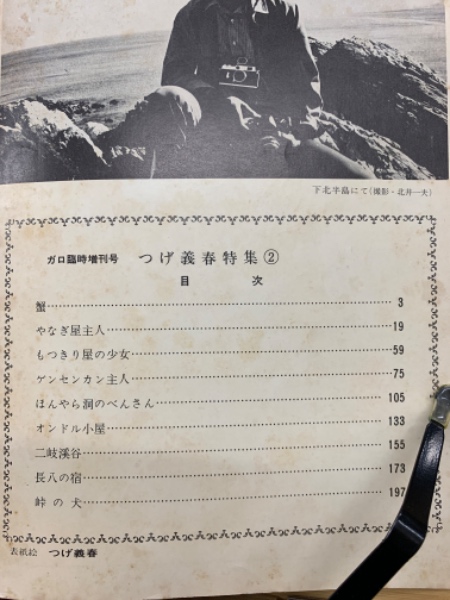 下北半島にて(撮影・北井一夫)
ガロ臨時増刊号 つげ義春特集②
目次
蟹 3
やなぎ屋主人 19
もつきり屋の少女 59
ゲンセンカン主人 75
ほんやら洞のべんさん 105
オンドル小屋 133
二岐渓谷 155
長八の宿 173
峠の犬 197
表紙絵 つげ義春